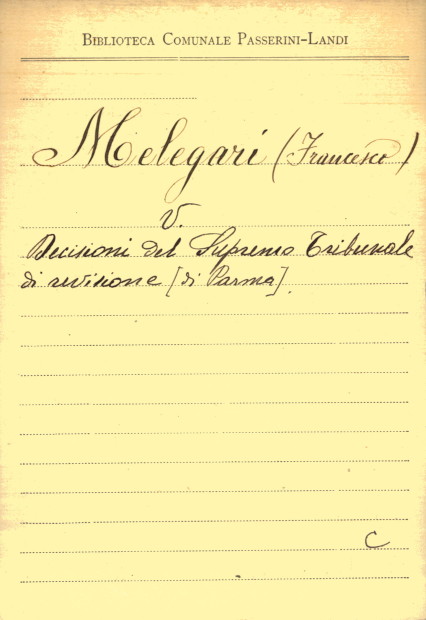 BIBLIOTECA COMUNALE PASSERINI-LANDI
Melegari (Francesco)
V.
Decisioni del Supremo Tribunale
di revisione [di Parma]
C